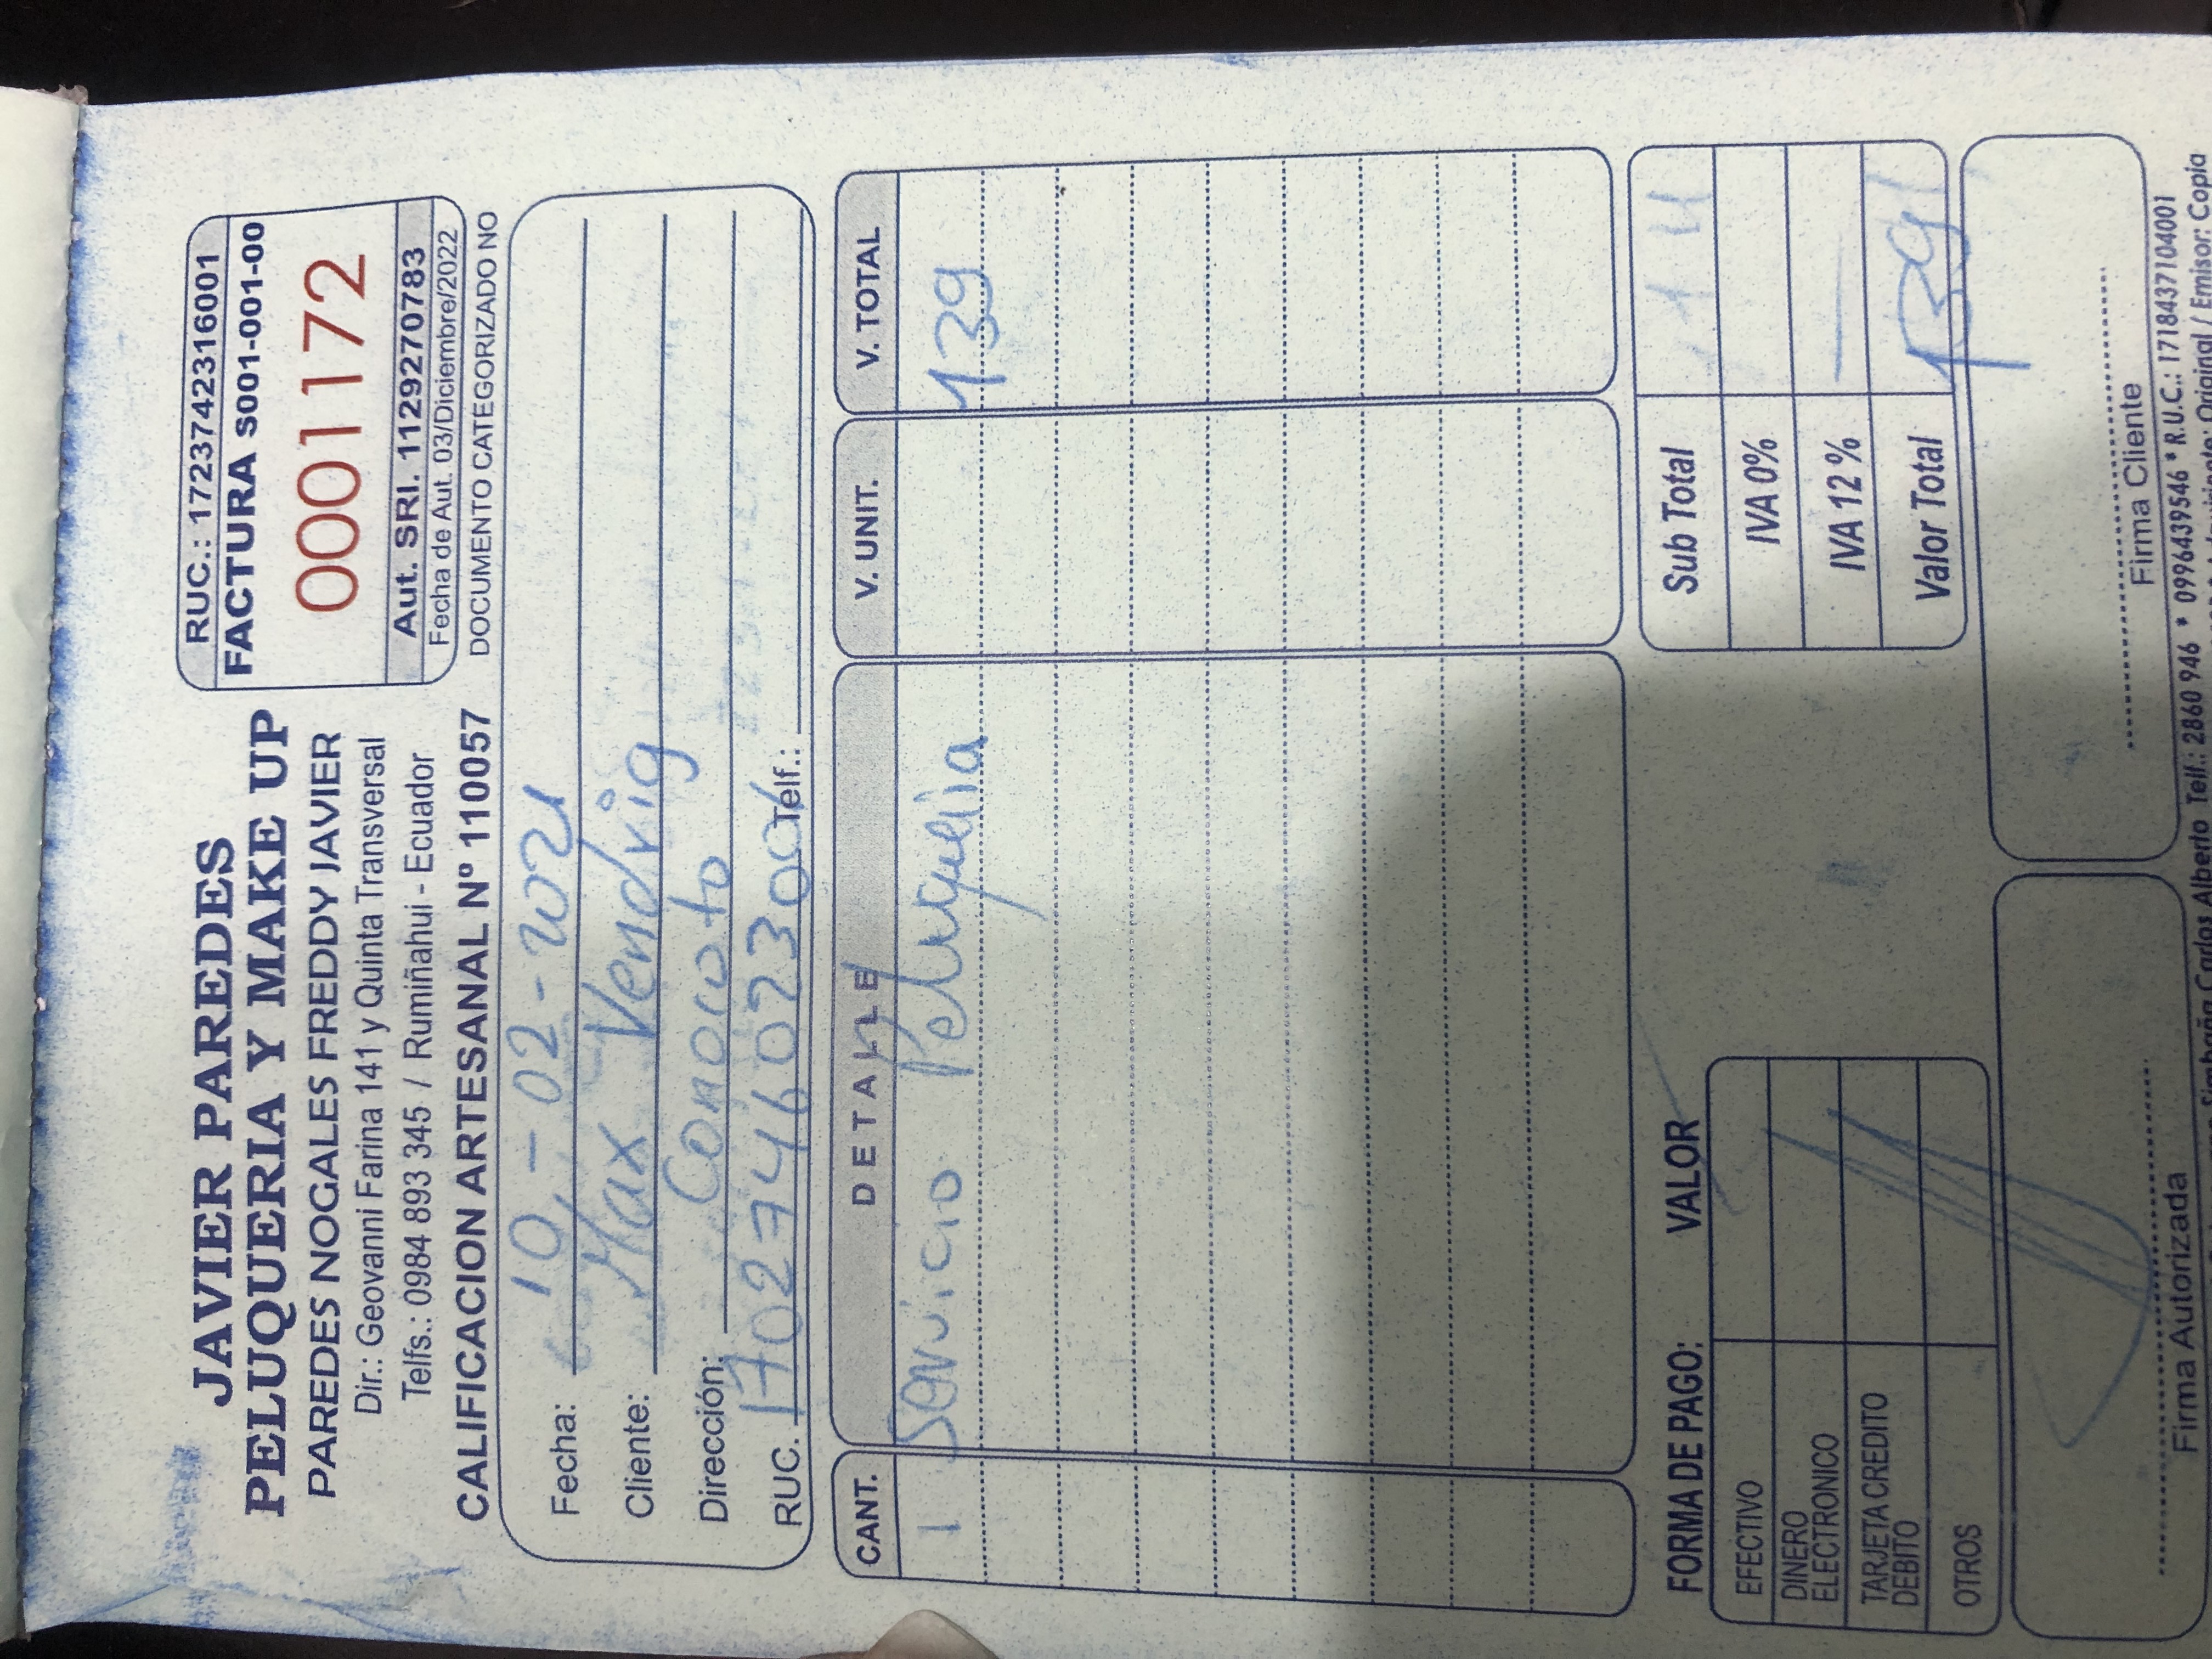 JAVIER PAREDES
PELUQUERIA Y MAKE UP
PAREDES NOGALES FREDDY JAVIER
Dir.: Geovanni Farina 141 y Quinta Transversal
Telfs.: 0984 893 345 / Rumiñahui - Ecuador
CALIFICACION ARTESANAL Nº 110057
RUC.: 1723742316001
FACTURA S001-001-00
0001172
Aut. SRI. 1129270783
Fecha de Aut. 03/Diciembre/2022
DOCUMENTO CATEGORIZADO NO
Fecha: 10 - 02 - 2021
Cliente: Max Vendrig
Dirección: Conocoto
RUC. 1702746023001 Telf.:
CANT. DETALLE V. UNIT. V. TOTAL
1 Servicio Peluqueria 139
FORMA DE PAGO: VALOR
EFECTIVO
DINERO
ELECTRONICO
TARJETA CREDITO
DEBITO
OTROS
Sub Total
IVA 0%
IVA 12 % —
Valor Total 139
Firma Autorizada
Firma Cliente
Carlos Alberto Telf.: 2860 946 * 0996439546 * R.U.C.: 1718437104001
Original / Emisor: Copia